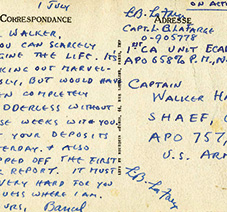 1 JULY
ON ACTI
CORRESPONDANCE
ADRESSE
WALKER,
OU CAN SCARCELY
GINE THE LIFE. IT'S
KING OUT MARVEL-
SLY, BUT WOULD HAVE
EN COMPLETELY
ODERLESS WITHOUT
SE WEEKS WITH YOU.
YOUR DEPOSITS
TERDAY. & ALSO
PPED OFF THE FIRST
REPORT. IT MUST
VERY HARD FOR YOU
UESS WHERE I AM.
URS, Bancel
L.B. LaFarge
CAPT. L. B. LAFARGE
0-905778
"CA UNIT ECAD
APO 658 P.M. N.
CAPTAIN
WALKER HA
SHAEF, G
APO 757,
U.S. ARM
L.B. LaFarge